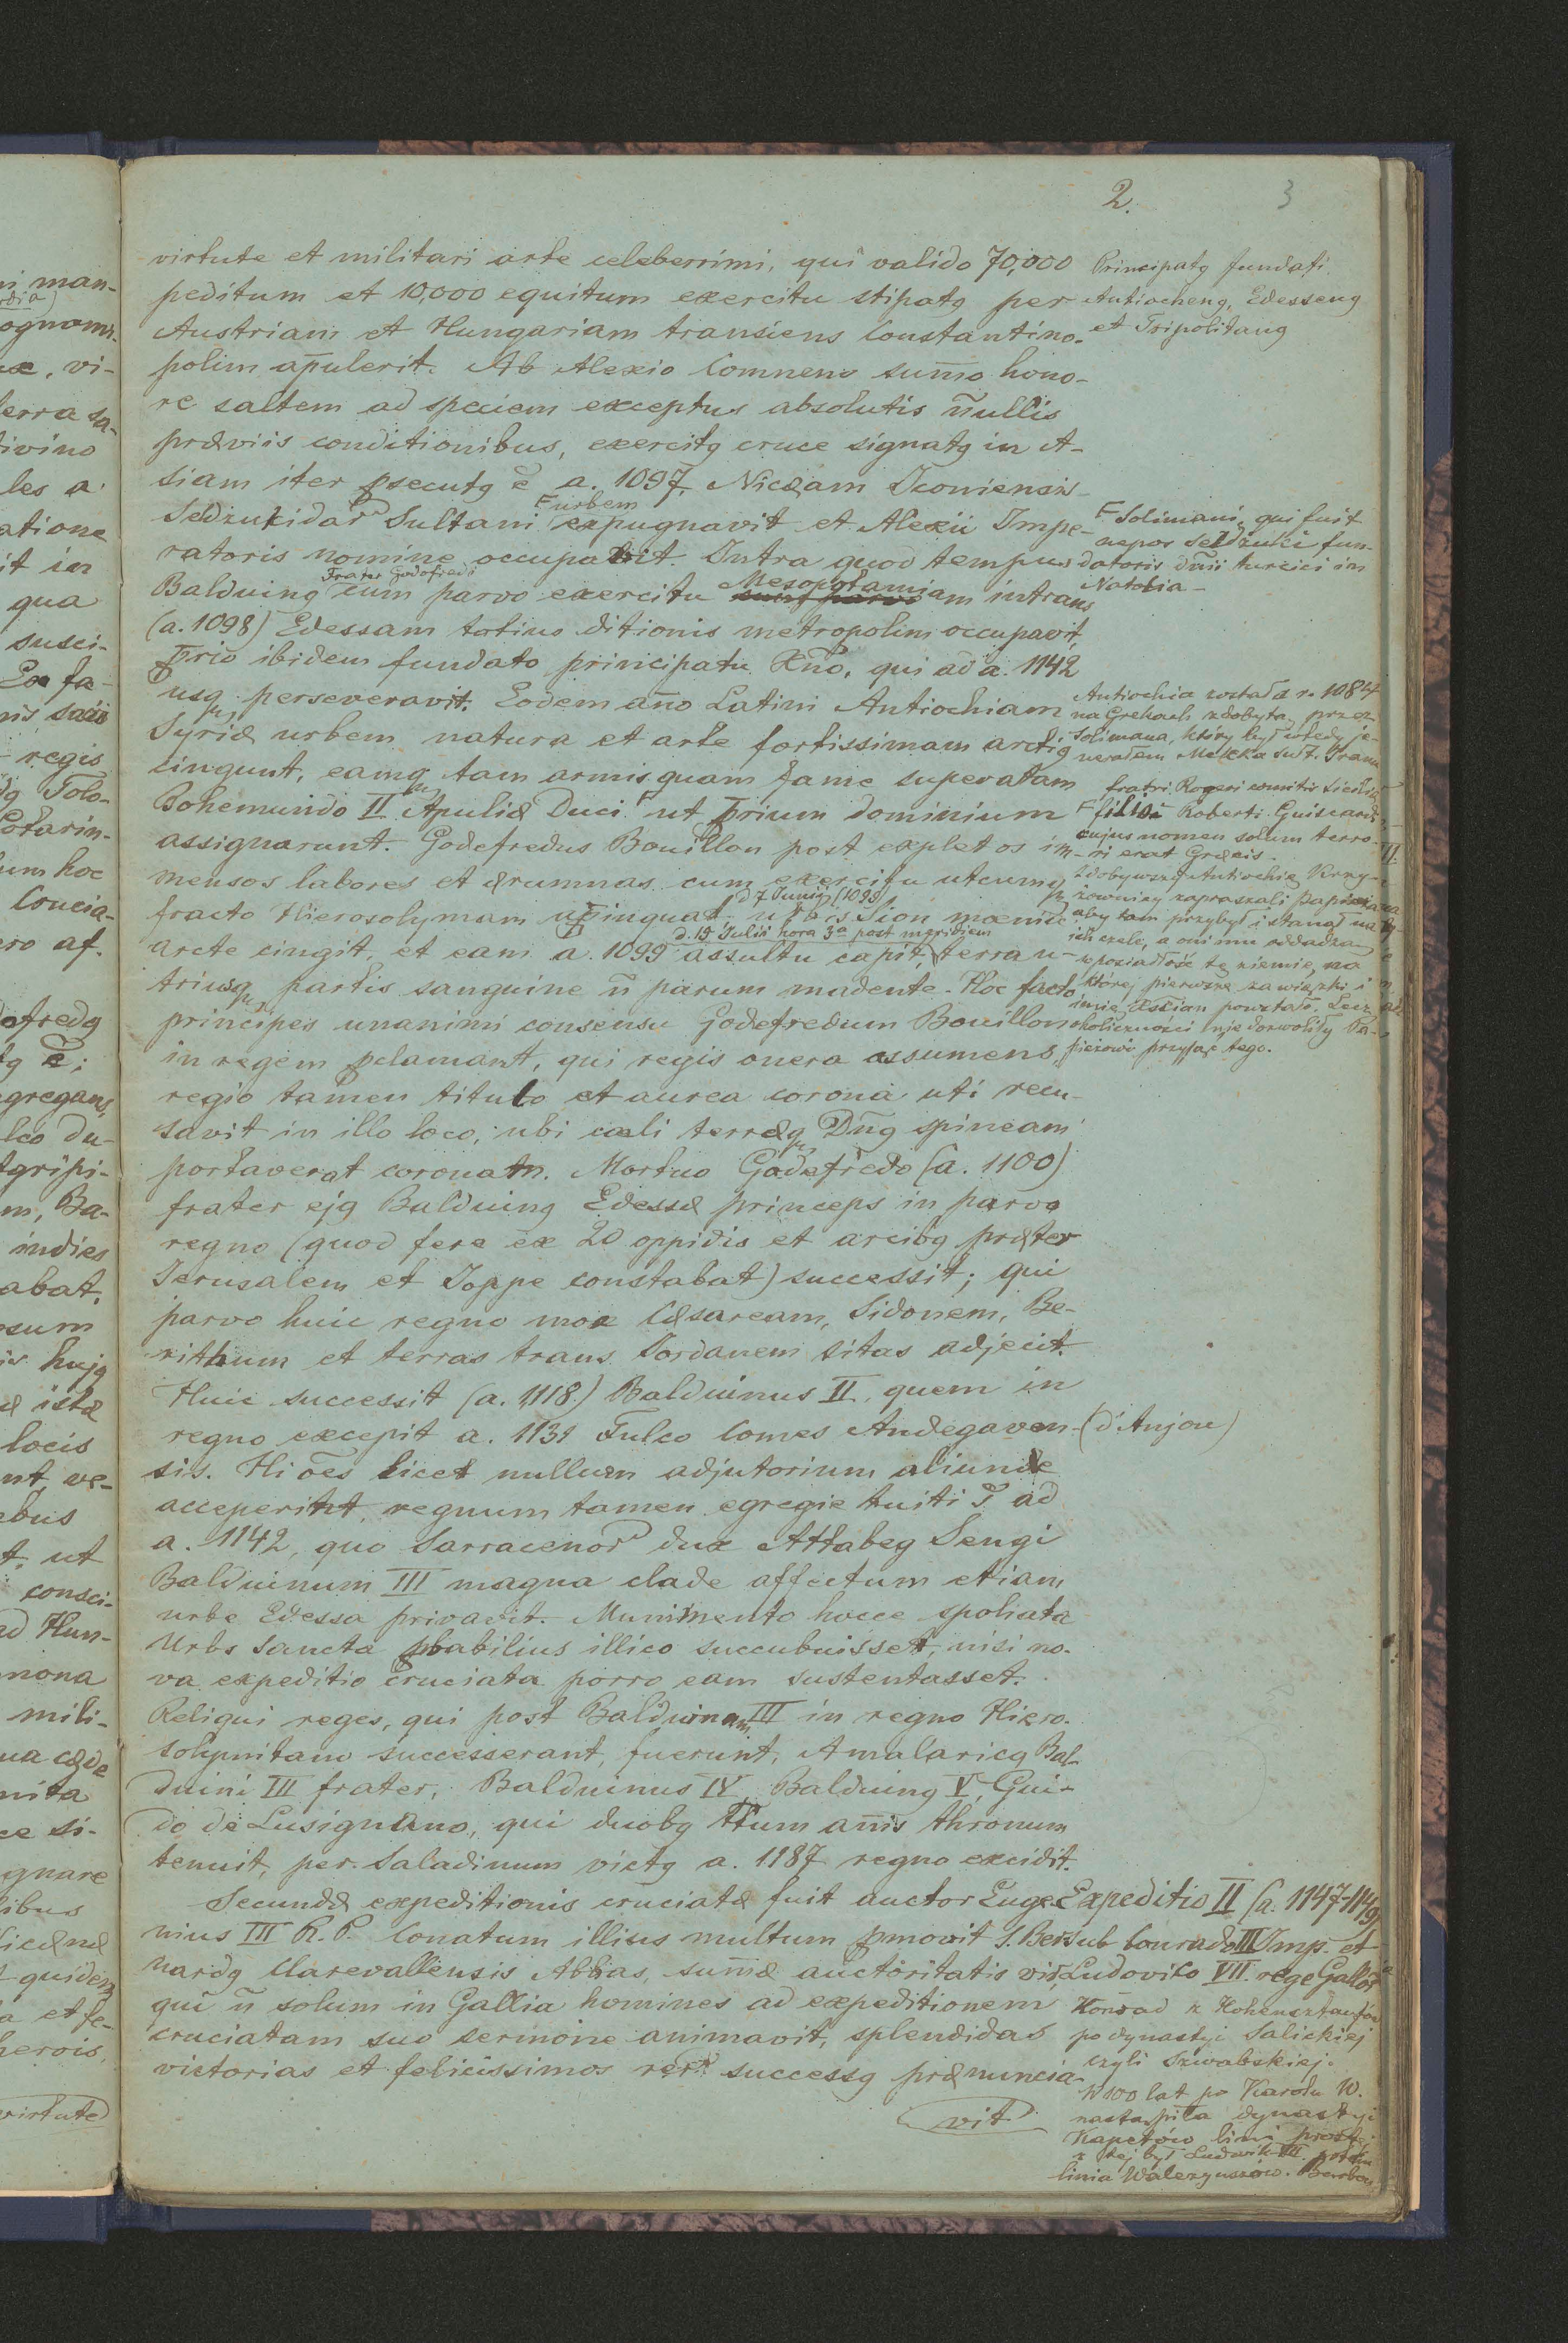 2. 3
virtute et militari arte celeberrimi, qui valido 70,000
peditum et 10,000 equitum exercitu stipatꝯ per
Austriam et Hungariam transiens Constantino-
polim ap̄ulerit. Ab Alexio Comneno sum̄o hono-
re saltem ad speciem exceptus absolutis n̄ullis
præviis conditionibus, exercitꝯ cruce signatꝯ in A-
siam iter ꝓsecutꝯ ē a. 1097. Nicæam Iconiensis
F urbem
Seldzukidar Sultani expugnavit et Alexii Impe-
ratoris nomine occupavit. Intra quod tempus
Frater Godofredi Mesopotami
Balduinꝯ cum parvo exercitu am intrans
(a. 1098) Edessam totius ditionis metropolim occupavit,
ꝓrio ibidem fundato principatu Xno, qui ad a. 1142
usq perseveravit. Eodem an̄o Latini Antiochiam
Syriæ urbem natura et arte fortissimam arctiꝯ
cingunt, eamq tam armis quam fame superatam
Bohemundo II Apuliæ Duci F ut ꝓrium dominium
assignarunt. Godefredus Bouillon post expletos im-
mensos labores et ærumnas cum exercitu utcumq
d. 7 Junii (1099)
fracto Hierosolymam ꝓpinquat, urbis Sion mœnia
d. 15 Julii hora 3a post meridiem
arcte cingit, et eam a. 1099 assultu capit, terra u-
triusq partis sanguine n̄ parum madente. Hoc facto
principes unanimi consensu Godefredum Bouillon
in regem ꝓclamant, qui regis onera assumens,
regio tamen titulo et aurea corona uti recu-
savit in illo loco, ubi cœli terræq Dn̄ꝯ spineam
portaverat coronam. Mortuo Godefredo (a. 1100)
frater ejꝯ Balduinꝯ Edessæ princeps in parvo
regno (quod fere ex 20 oppidis et arcibꝯ præter
Jerusalem et Joppe constabat) successit; qui
parvo huic regno mox Cæsaream, Sidonem, Be-
rithum et terras trans Jordanem sitas adjecit.
Huic successit (a. 1118) Balduinus II, quem in
regno excepit a. 1131 Fulco Comes Andegaven-
sis. Hi ōes licet nullum adjutorium aliunde
acceperint, regnum tamen egregie tuiti s̄ ad
a. 1142, quo Sarracenor dux Attabeg Sengi
Balduinum III magna clade affectum etiam
urbe Edessa privavit. Munimento hocce spoliata
Urbs Sancta ꝓbabilius illico succubuisset, nisi no-
va expeditio cruciata porro eam sustentasset.
Reliqui reges, qui post Balduinum III in regno Hiero-
solymitano successerant, fuerunt, Amalaricꝯ Bal-
duini III frater, Balduinus IV, Balduinꝯ V, Gui-
do de Lusignano, qui duobꝯ tt̄um an̄is thronum
tenuit, per Saladinum victꝯ a. 1187 regno excidit.
Secundæ expeditionis cruciatæ fuit auctor Euge-
nius III R. P. Conatum illius multum ꝓmovit S. Ber-
nardꝯ Clarevallensis Abbas, sum̄æ auctoritatis vir,
qui n̄ solum in Gallia homines ad expeditionem
cruciatam suo sermone animavit, splendidas
victorias et felicissimos rer successꝯ prænuncia-
vit
Principatꝯ fundati
Antiochenꝯ, Edessenꝯ
et Tripolitanꝯ
F Solimani, qui fuit
nepos Seldzuki fun-
datoris dn̄ii turcici in
Natolia
Antiochia została r. 1084
na Grekach zdobyta, przez
Solimana, który był wtedy je-
nerałem Meleka
fratri Rogeri comitis Siciliæ
F filio Roberti Guiscardi,
cujus nomen solum terro-
ri erat Græcis.
Zdobywszy Antiochię Krzy-
żowniczy zapraszali Papieża
aby tam przybył i stanął na
ich czele, a oni mu oddadzą
w posiadłość tę ziemię, na
której pierwsze zawiązki i
imię Xścian powstało. Lecz
okoliczności nie dozwoliły Pa-
pieżowi przyjąć tego.
(d'Anjou)
Expeditio II (a. 1147-1149)
sub Conrado III Imp. et
Ludovico VII. rege Gallor
Konrad z Hohensztaufów
po dynastyi Salickiej
czyli Szwabskiej.
W 100 lat po Karolu W.
nastąpiła dynastyi
Kapetów linii
z tej był Ludwik VII. potem
linia Walezyuszów.